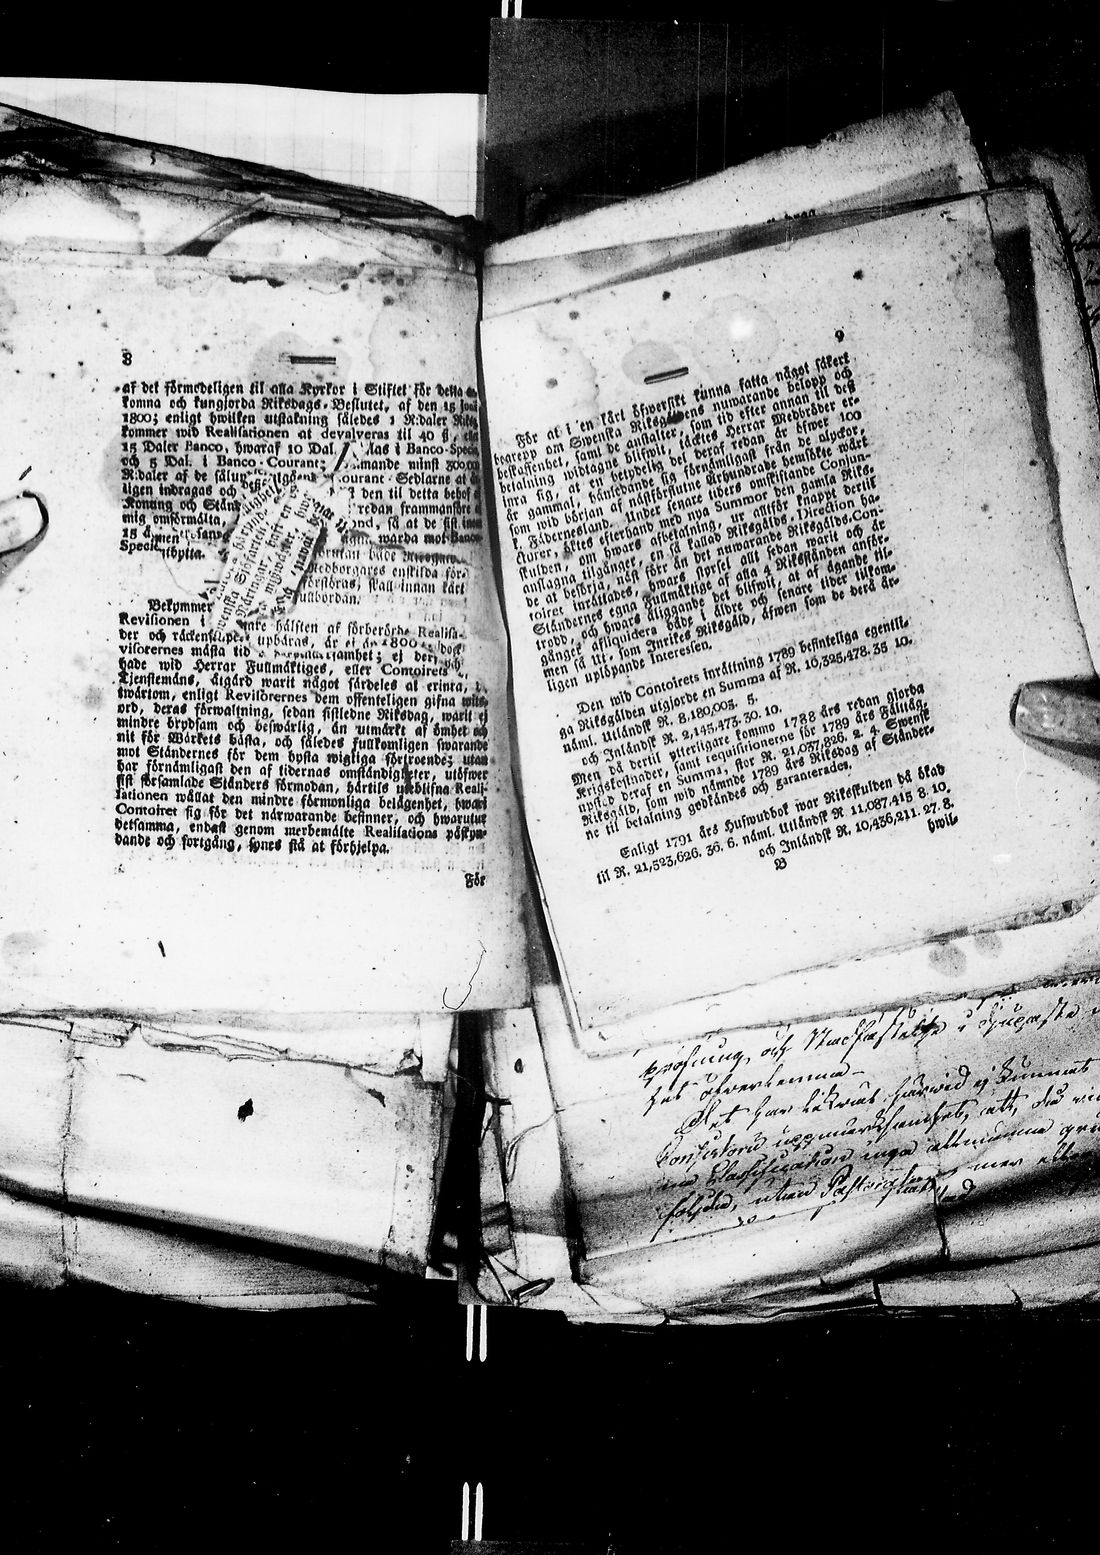 8
af det förmodeligen til alla Kyrkor i Stiftet för detta
komna och kungjorda Riksdags-Beslutet, af den 15 Junii
1800; enligt hwilken utstakning således 1 R:daler Riksg
kommer wid Realisationen at devalveras til 40 ß,
15 Daler Banco, hwaraf 10 Dal. las i Banco-Specie
och 5 Dal. i Banco-Courant; mande minst 300,000
R:daler af de sålun Courant-Sedlarne at
ligen indragas och den til detta behof
Konung och Stän redan frammanför
mig omförmälta, ond, så at de sist
15 warda mot Banco-
Specie utbytta.
både
Medborgares enskilda för-
förstöras, skall innan kårt
fullbordan.
Bekymmer
Revisionen i hälften af förberörde Realisa-
der och räckenskaper upbäras, är ej år 1800 dock
visorernes mästa tid samhet; ej der och
hade wid Herrar Fullmäktiges, eller Contoirets
Tjenstemäns, åtgärd warit något särdeles at erinra,
twärtom, enligt Revisorernes dem offenteligen gifna witts-
ord, deras förwaltning, sedan sistledne Riksdag, warit ej
mindre brydsam och beswärlig, än utmärkt af ömhet och
nit för Wärkets bästa, och således fullkomligen swarande
mot Ståndernes för dem hysta wigtiga förtroende; utan
har förnämligast den af tidernas omständigheter, utöfwer
sist församlade Ständers förmodan, härtils uteblifna Reali-
sationen wållat den mindre förmonliga belägenhet, hwari
Contoiret sig för det närwarande befinner, och hwarutur
detsamma, endast genom merbemälte Realisations påskyn-
dande och fortgång, synes stå at förhjelpa.
För
9
För at i en kårt öfwersikt kunna fatta något säkert
begrepp om Swenska Riksgäldens nuwarande belopp och
beskaffenhet, samt de anstalter, som tid efter annan til dess
betalning widtagne blifwit, täcktes Herrar Medbröder er-
inra sig, at en betydelig del deraf redan är öfwer 100
år gammal, hänledande sig förnämligast från de olyckor,
som wid början af nästförflutne Århundrade hemsökte wårt
k. Fädernesland. Under senare tiders omskiftande Conjun-
cturer, öktes efterhand med nya Summor den gamla Riks-
skulden, om hwars afbetalning, ur alltför knappt dertil
anslagna tilgångar, en så kallad Riksgälds-Direction ha-
de at besörja, näst förr än det nuwarande Riksgälds-Con-
toiret inrättades, hwars styrsel allt sedan warit och är
Ständernes egna Fullmäktige af alla 4 Riksstånden anför-
trodd, och hwars åliggande det blifwit, at af ägande til-
gångar afliquidera både i äldre och senare tider tilkom-
men så Ut- som Inrikes Riksgäld, äfwen som de derå är-
ligen uplöpande Interessen.
Den wid Contoirets inrättning 1789 befinteliga egentli-
ga Riksgälden utgjorde en Summa af R. 10,325,478. 35 10.
näml. Utländsk R. 8,180,005. 5.
och Inländsk R. 2,145,473. 30. 10.
Men då dertil ytterligare kommo 1788 års redan gjorda
Krigskostnader, samt requisitionerne för 1789 års Fälttåg,
upstod deraf en Summa, stor R. 21,037,826. 2. 4. Swensk
Riksgäld, som wid nämnde 1789 års Riksdag af Ständer-
ne til betalning godkändes och garanterades.
Enligt 1791 års Hufwudbok war Riksskulden då ökad
til R. 21,523,626. 36. 6. näml. Utländsk R. 11,087,415 8. 10.
och Inländsk R. 10,436,211. 27. 8.
B
hwil-
pröfning och Stadfästelse i
het öfwerlemna.
Det har likwäl härwid ej kunnat
Consistorii upmärksamhet, att, då
na Classification inga allmänna
följder, utan Pastoraternas mer eller